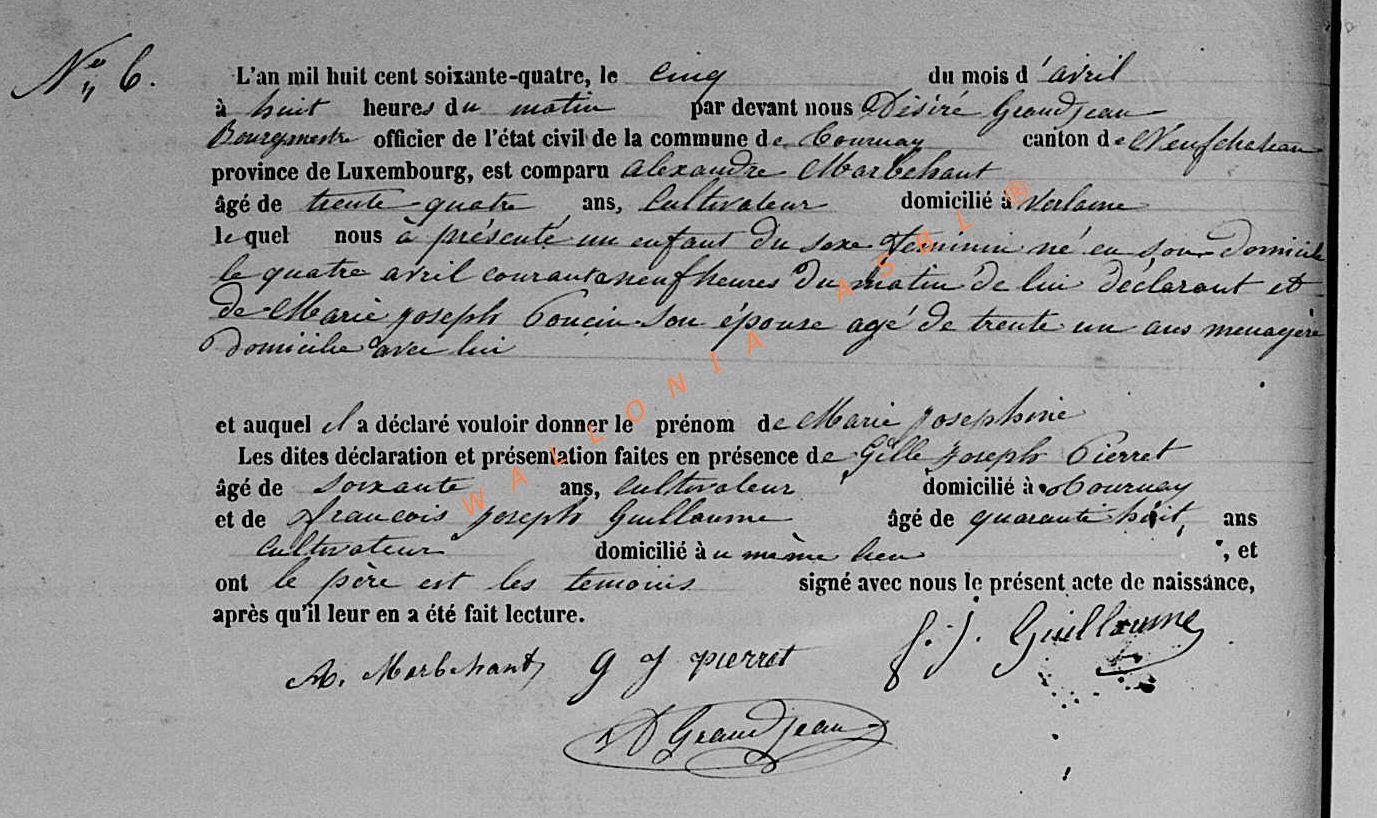 N° 6.
L'an mil huit cent soixante-quatre, le cinq du mois d'avril
à huit heures du matin par devant nous Désiré Grandjean
Bourgmestre officier de l'état civil de la commune de Tournay canton de Neufchateau
province de Luxembourg, est comparu Alexandre Marbehant
âgé de trente quatre ans, Cultivateur domicilié à Verlaine
lequel nous à présenté un enfant du sexe feminin né en son domicile
le quatre avril courant a neuf heures du matin de lui déclarant et
de Marie Joseph Poncin son épouse agé de trente un ans menagère
domicilie avec lui
et auquel il a déclaré vouloir donner le prénom de Marie Josephine
Les dites déclaration et présentation faites en présence de Gille Joseph Pierret
âgé de soixante ans, cultivateur domicilié à Tournay
et de françois Joseph Guillaume âgé de quarante huit, ans
Cultivateur domicilié à u même lieu , et
ont le père est les temoins signé avec nous le présent acte de naissance,
après qu'il leur en a été fait lecture.
A. Marbehant g J pierret f. j. Guillaume
D Grandjean
WALLONIA ASBL ®